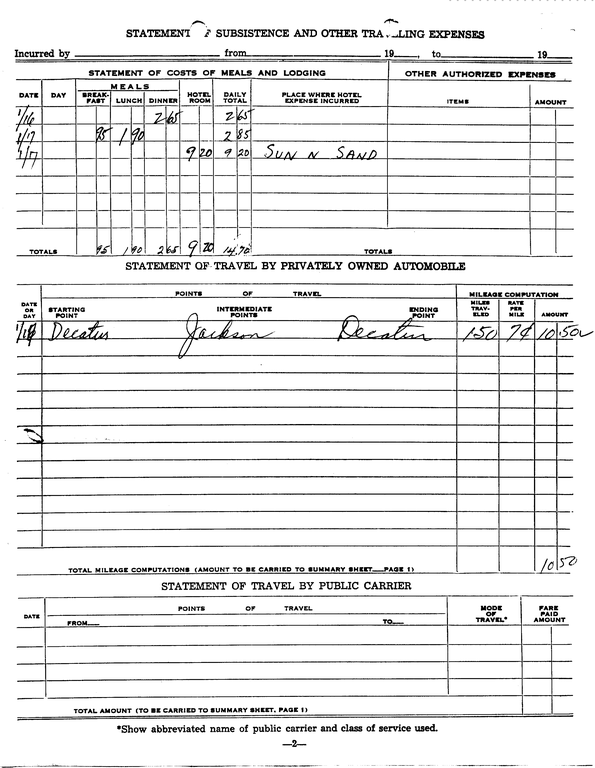 STATEMENT OF SUBSISTENCE AND OTHER TRAVELING EXPENSES
Incurred by from 19 , to 19
STATEMENT OF COSTS OF MEALS AND LODGING OTHER AUTHORIZED EXPENSES
DATE DAY MEALS HOTEL ROOM DAILY TOTAL PLACE WHERE HOTEL EXPENSE INCURRED ITEMS AMOUNT
BREAK-FAST LUNCH DINNER
1/16 2 65 2 65
1/17 95 1 90 2 85
1/7 9 20 9 20 SUN N SAND
TOTALS 95 1 90 2 65 9 20 14.70 TOTALS
STATEMENT OF TRAVEL BY PRIVATELY OWNED AUTOMOBILE
POINTS OF TRAVEL MILEAGE COMPUTATION
DATE OR DAY STARTING POINT INTERMEDIATE POINTS ENDING POINT MILES TRAV-ELED RATE PER MILE AMOUNT
Decatur Jackson Decatur 150 7¢ 10.50
TOTAL MILEAGE COMPUTATIONS (AMOUNT TO BE CARRIED TO SUMMARY SHEET PAGE 1) 10 50
STATEMENT OF TRAVEL BY PUBLIC CARRIER
DATE POINTS OF TRAVEL MODE OF TRAVEL* FARE PAID AMOUNT
FROM TO
TOTAL AMOUNT (TO BE CARRIED TO SUMMARY SHEET, PAGE 1)
*Show abbreviated name of public carrier and class of service used.
—2—